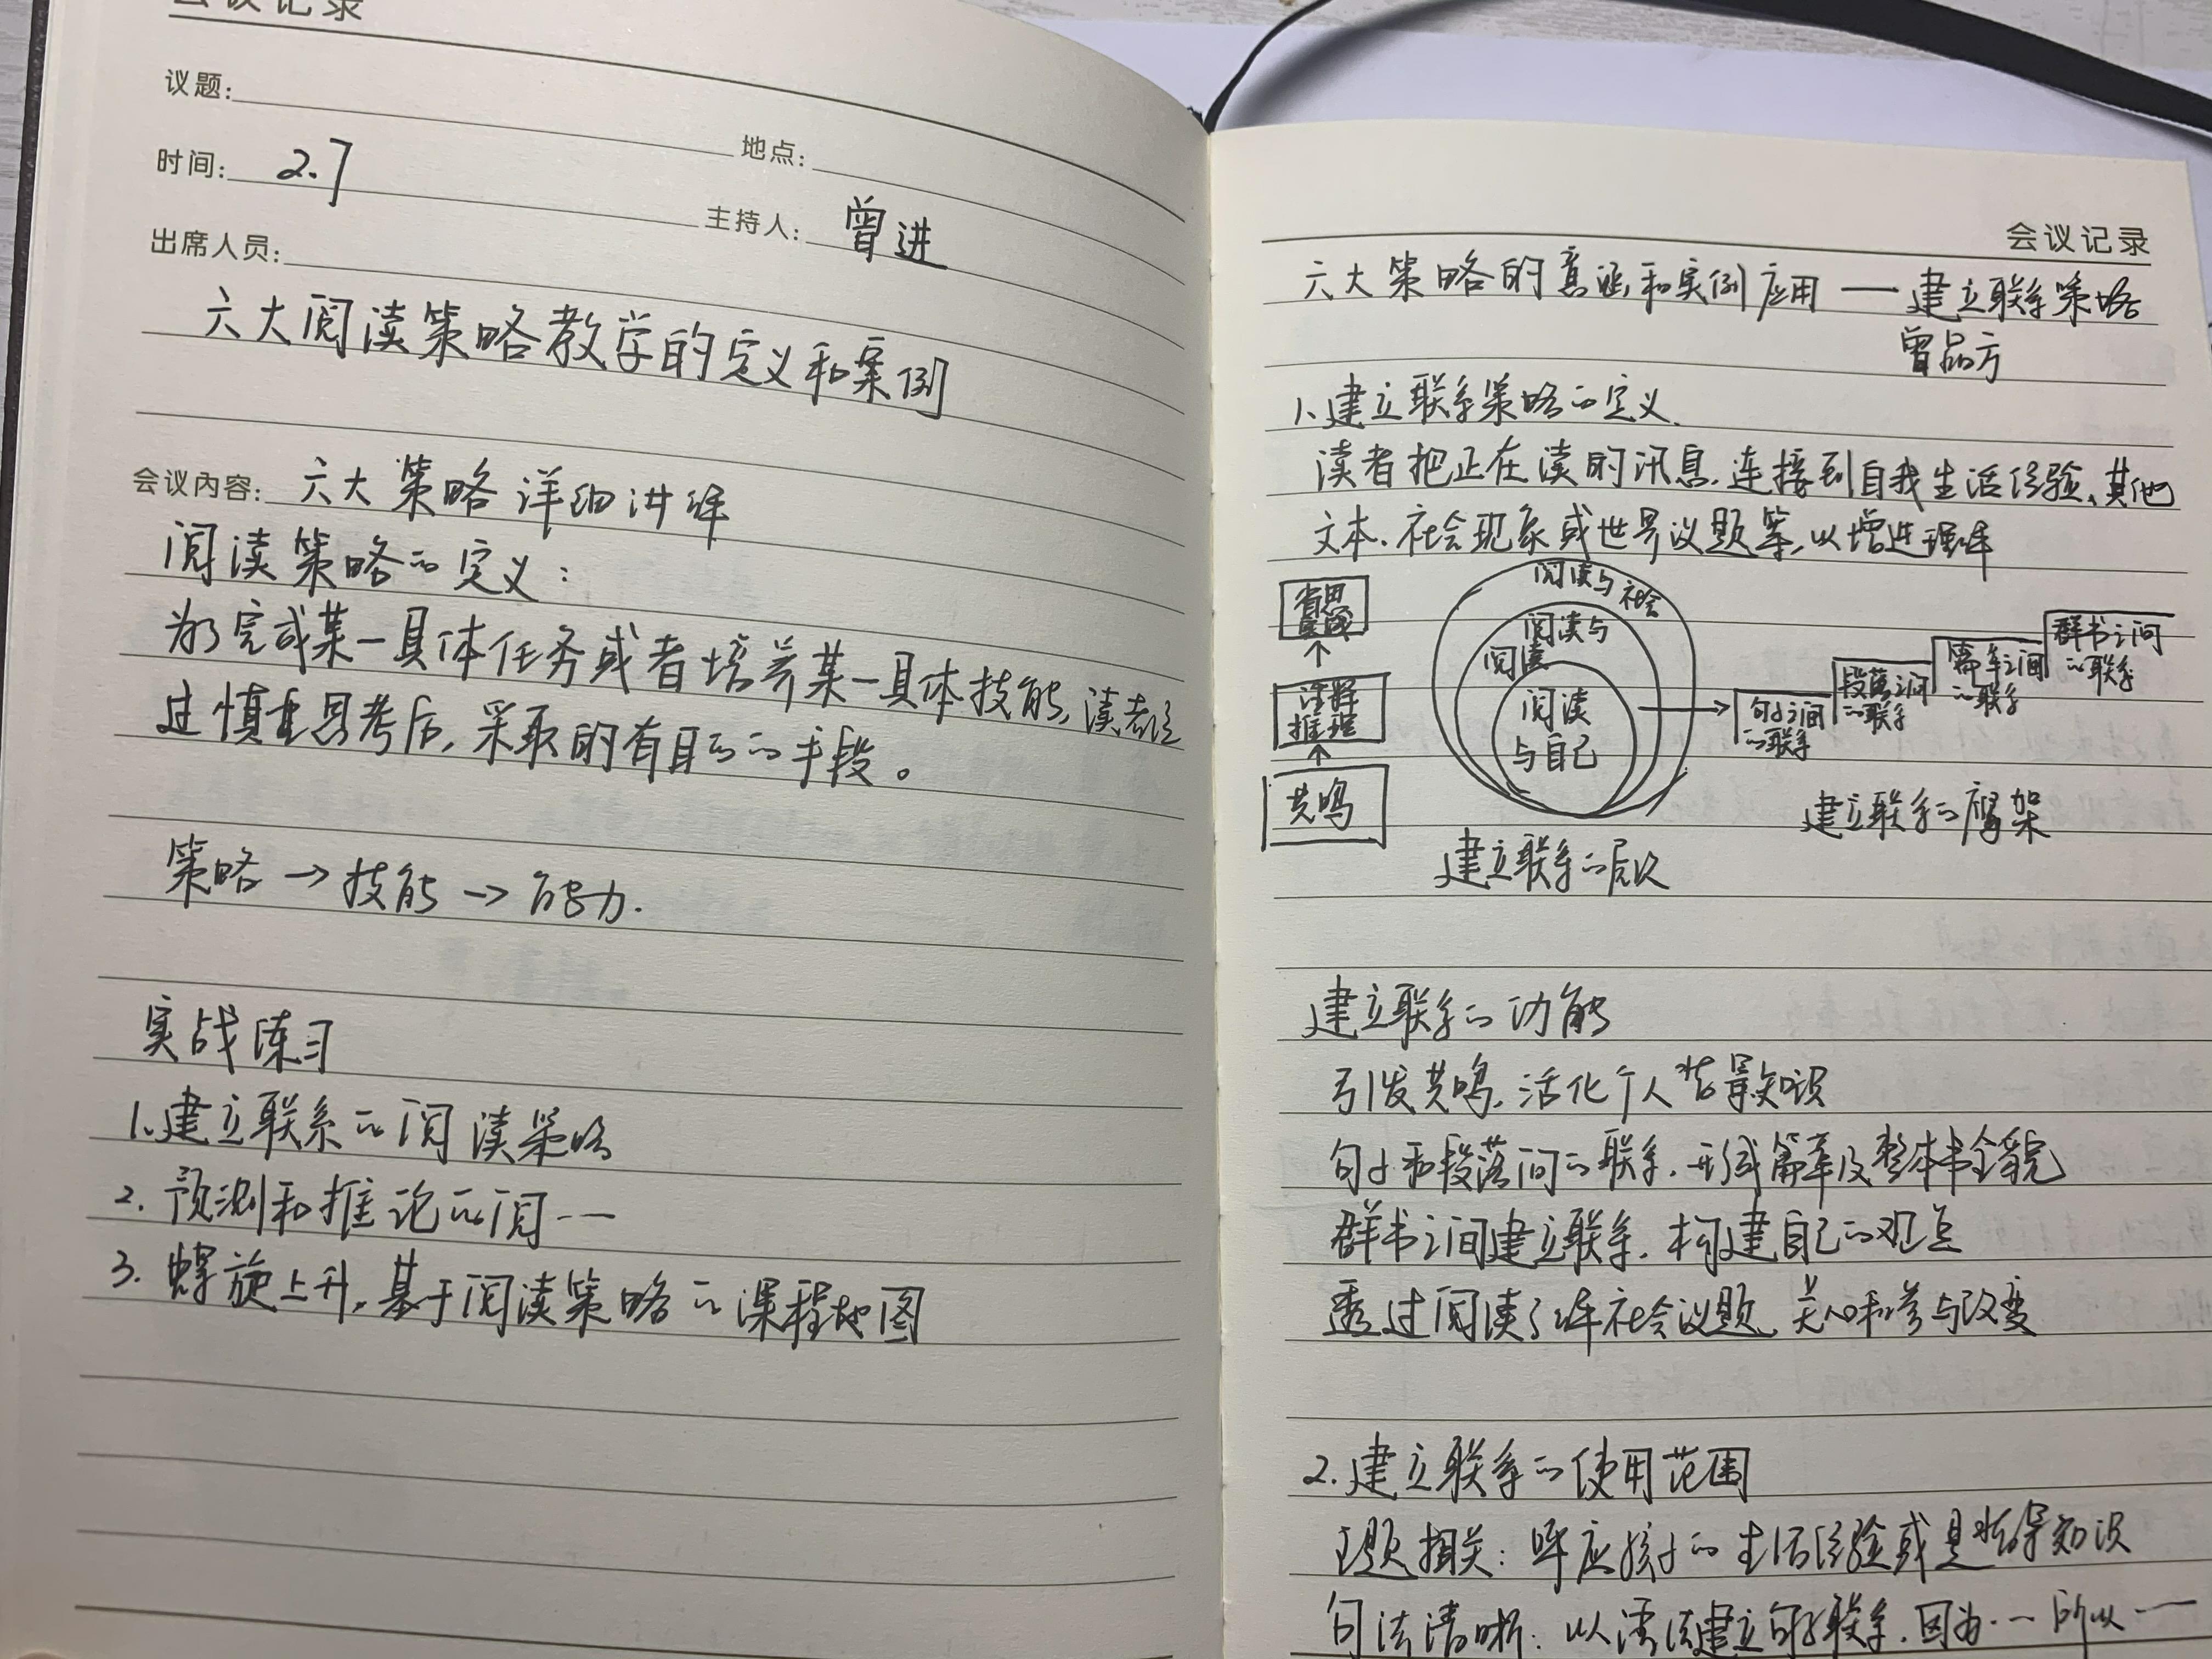 会议记录
议题:
地点:
时间: 2.7
主持人: 曾进
出席人员:
六大阅读策略教学的定义和案例
会议内容: 六大策略详细讲解
阅读策略的定义:
为了完成某一具体任务或者培养某一具体技能,读者经
过慎重思考后,采取的有目的的手段。
策略→技能→能力.
实战练习
1.建立联系的阅读策略
2.预测和推论的阅……
3.螺旋上升,基于阅读策略的课程地图
会议记录
六大策略的意涵和实例应用——建立联系策略
曾品方
1、建立联系策略的定义.
读者把正在读的讯息,连接到自我生活经验、其他
文本、社会现象或世界议题等,以增进理解
省思
↑
推理
↑
共鸣
阅读与社会
阅读与
阅读
阅读
与自己
→
句子之间
的联系
段落之间
的联系
篇章之间
的联系
群书之间
的联系
建立联系的层次
建立联系的鹰架
建立联系的功能
引发共鸣,活化个人背景知识
句子和段落间的联系,形成篇章及整本书全貌
群书之间建立联系,构建自己的观点
透过阅读了解社会议题,关心和参与改变
2.建立联系的使用范围
主题相关:呼应孩子的生活经验或是背景知识
句法清晰:以语法建立句子联系,因为……所以……